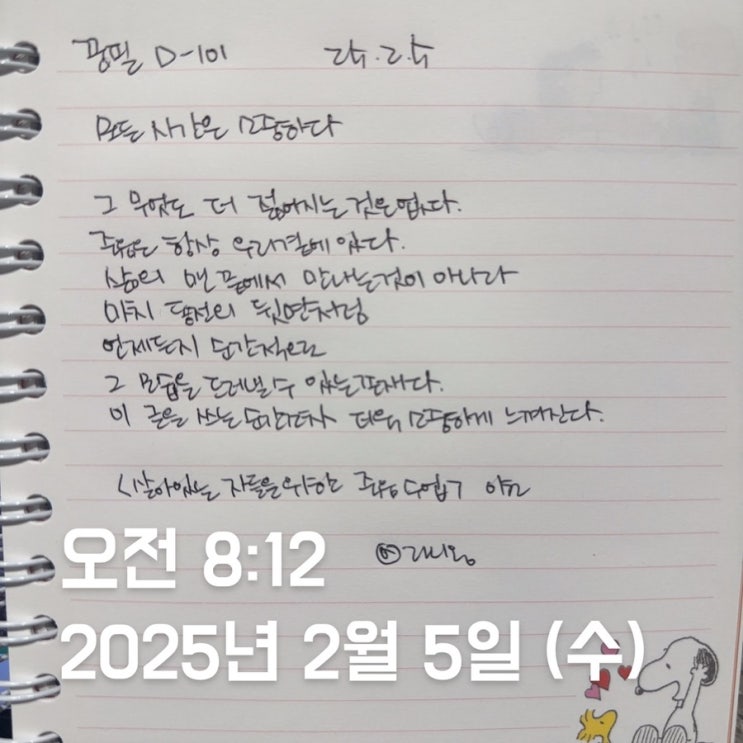 꽁필 D-101
모든 시간은 소중하다
그 무엇도 더 젊어지는 것은 없다.
죽음은 항상 우리곁에 있다.
삶의 맨 끝에서 만나는것이 아니라
마치 동전의 뒷면처럼
언제든지 순간적으로
그 모습을 드러낼 수 있는 존재다.
이 글을 쓰는 순간조차 더욱 소중하게 느껴진다.
<살아있는 자들을 위한 죽음 수업>
오전 8:12
2025년 2월 5일 (수)